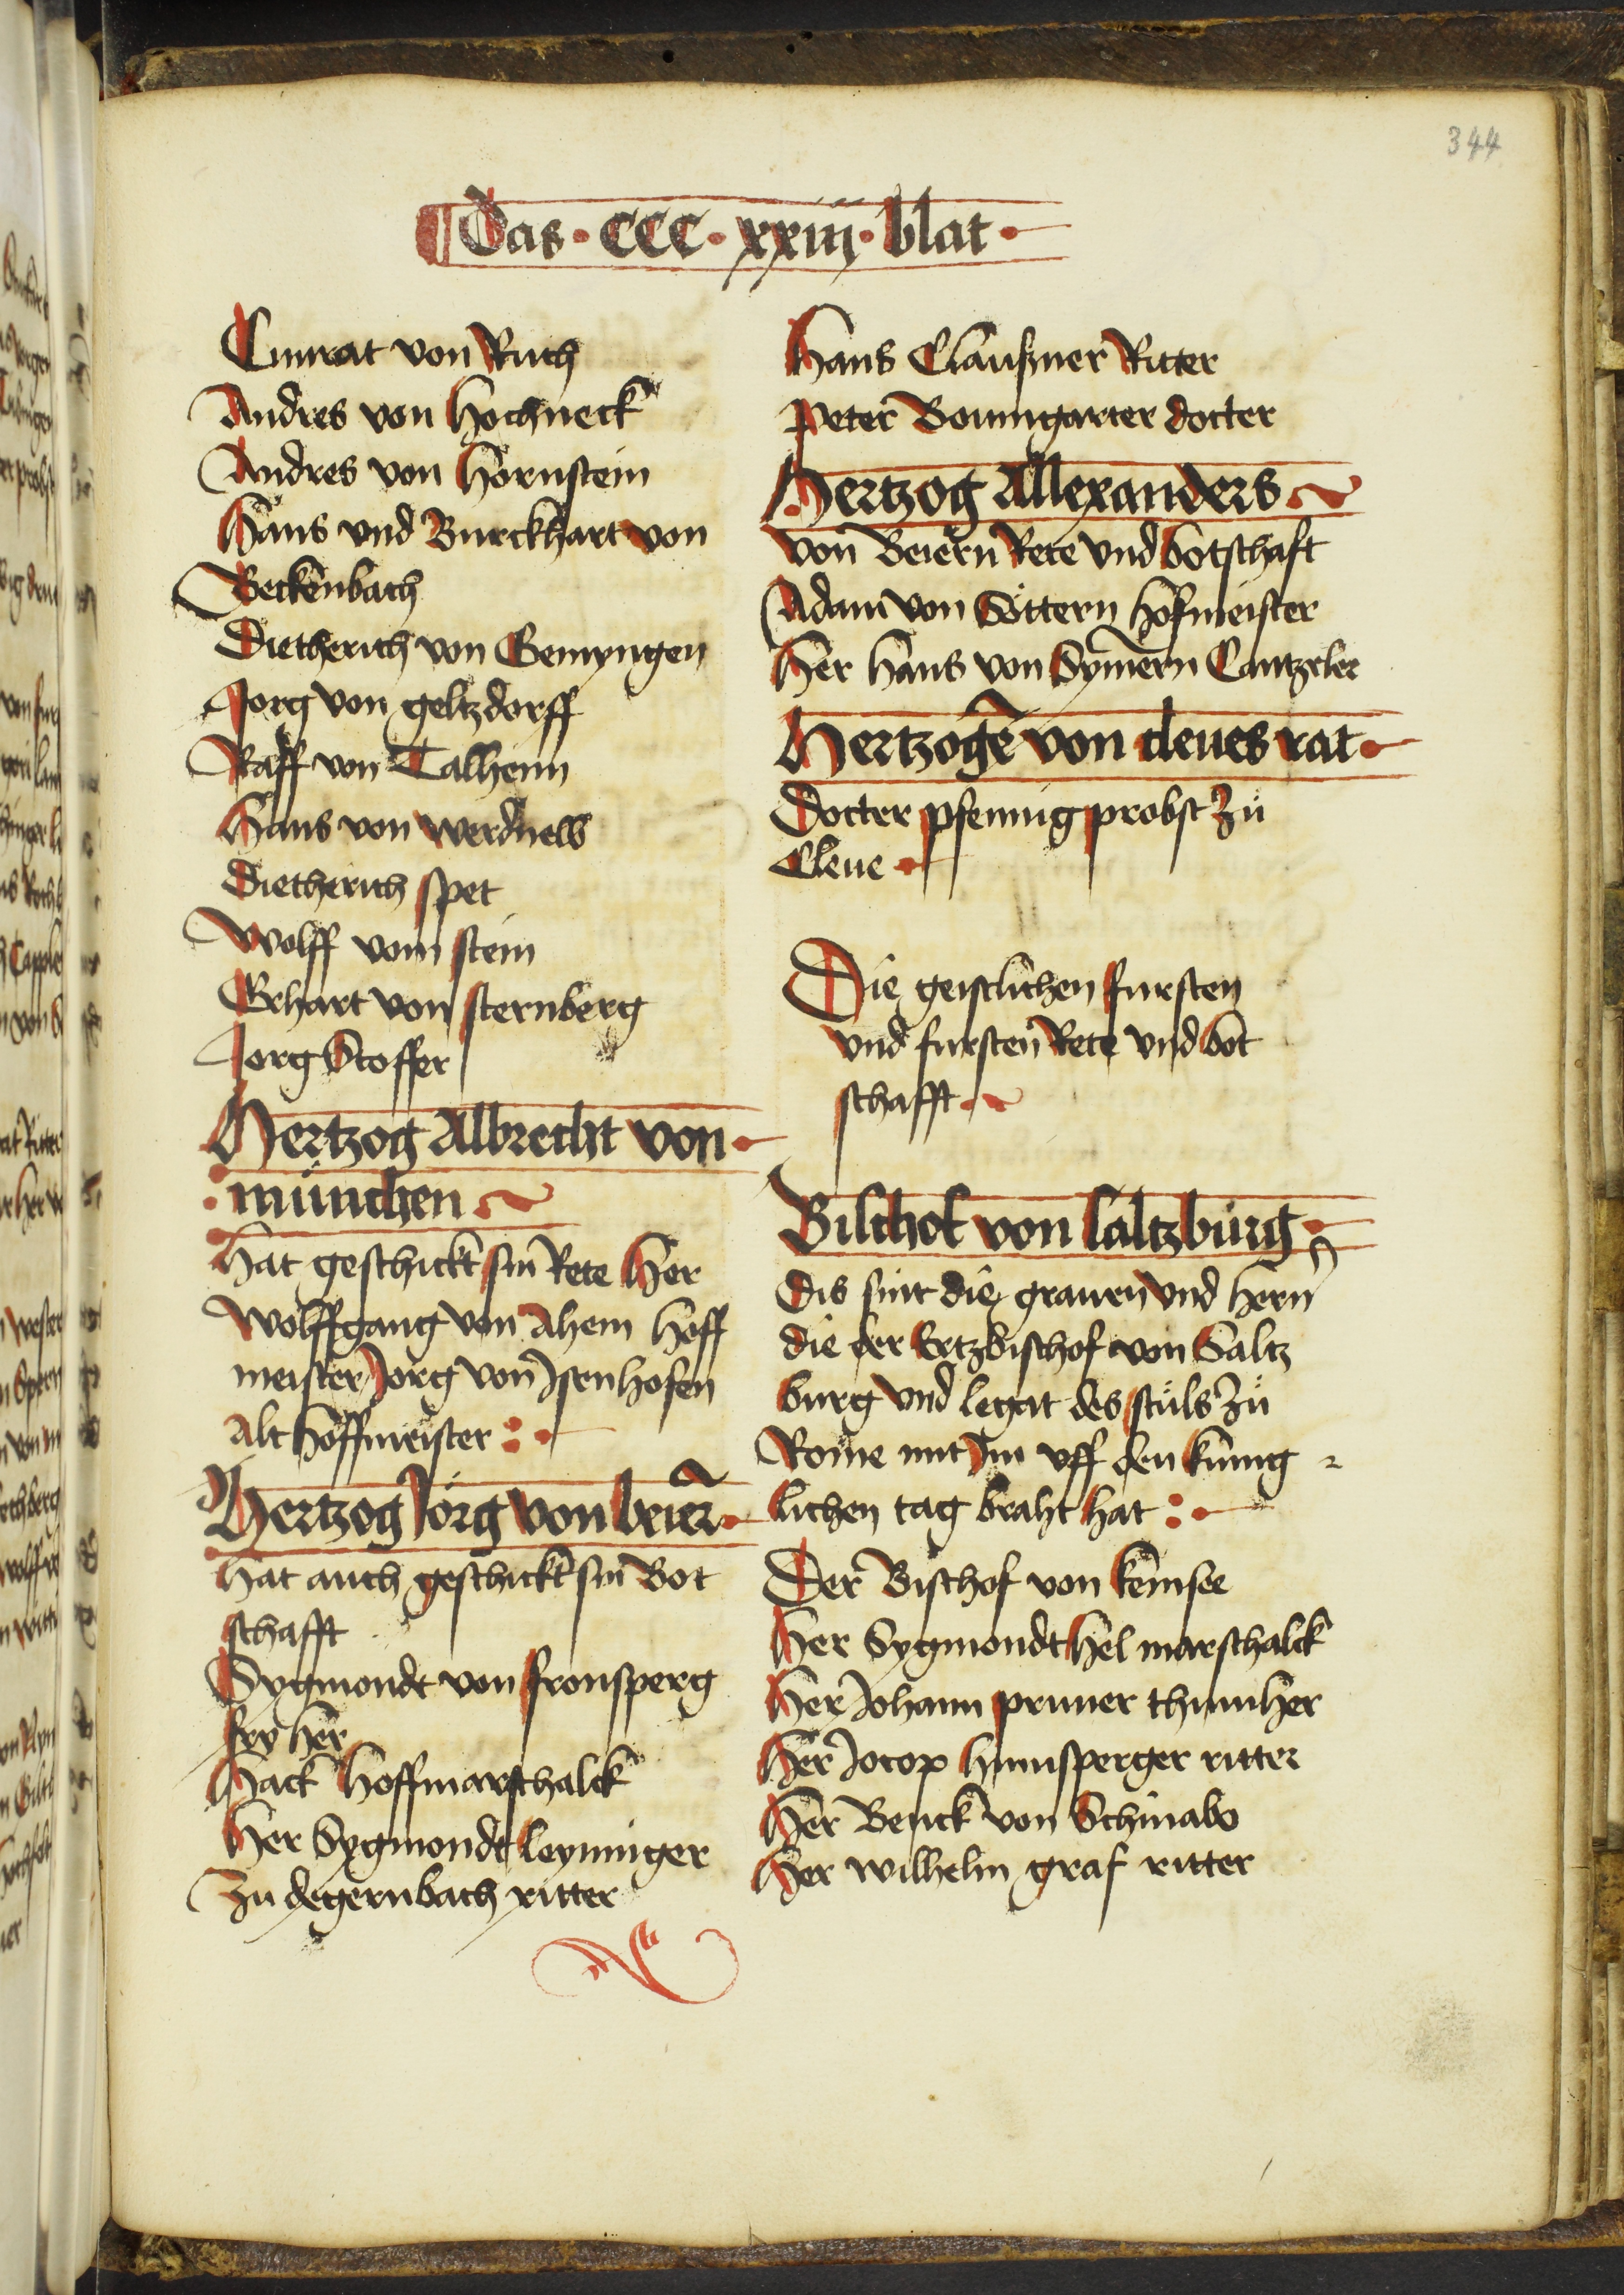 344
Das · CCC · xxiiij · blat ·
Cunrat von Ruch
Andres von Hochneck
Andres von Hornstein
Hans vnd Burckhart von
Weckenbach
Dietherich von Gemyngen
Jorg von geltzdorff
Raff von Talheim
Hans von werdnew
Dietherich spet
Wolff vom stein
Erhart von sternberg
Jorg Stoffer
Hertzog Albrecht von
münchen
Hat geschickt sin Rete Her
Wolffgang von Ahem Hoff
meister Jorg von Isenhofen
Alt Hoffmeister
Hertzog Jörg von beier
Hat auch geschickt sin Bot
schafft
Sygmondt von fronsperg
fry Her
Hack Hoffmarschalck
Her Sygmondt leyninger
zu degernbach ritter
Hans Claußner Ritter
Peter Boumgarter docter
Hertzog Allexanders
von Beiern Rete vnd botschaft
Adam von Söttern Hofmeister
Her Hans von Symern Cantzeler
Hertzogē von cleues rat
Docter pfennig probst zů
Cleue
Die geistlichen fursten
vnd fursten Rete vnd bot
schafft
Bischof von saltzburg
Dis sint die grauen vnd Hern
die der Ertzbischof von Saltz
burg vnd legat des stůls zů
Rome mit Im vff den kunig
lichen tag braht hat
Der Bischof von kemsee
Her Sygmondt Hel marschalck
Her Johann pruner thumher
Her Jocop Hunsperger ritter
Her Benck von Schinabo
Her wilhelm graf ritter